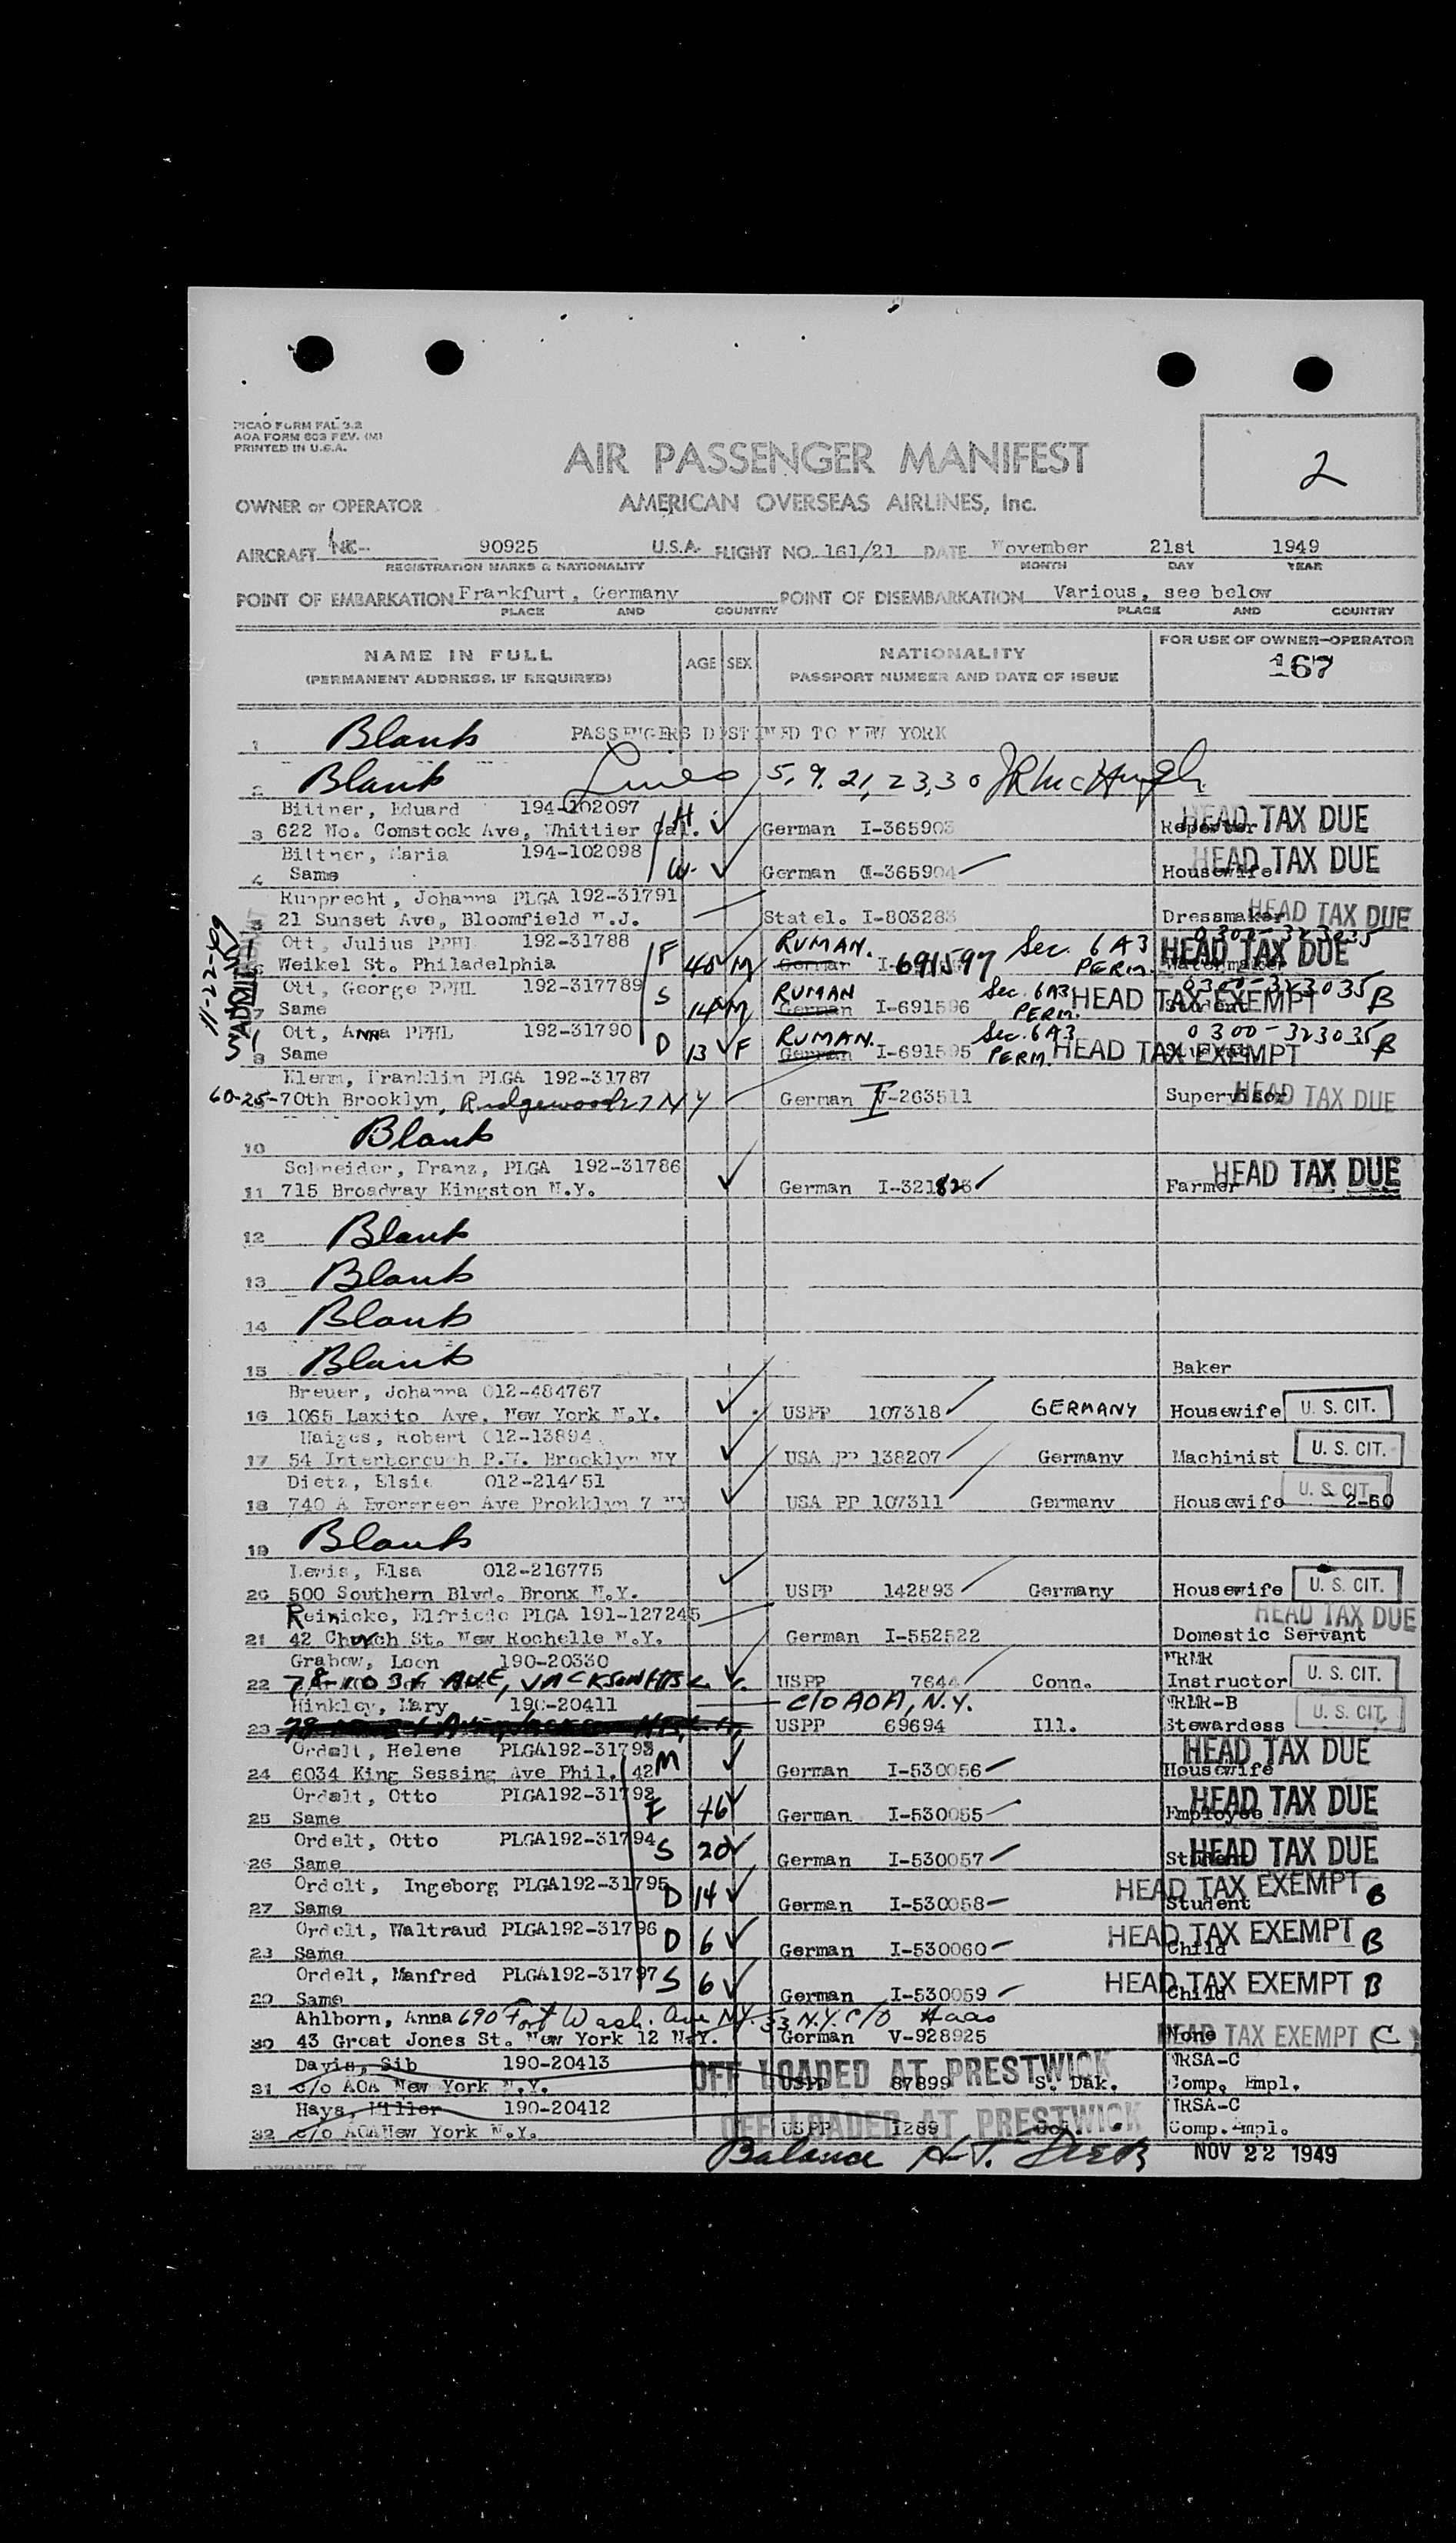 PICAO FORM FAL 3.2
AOA FORM 603 REV. (M)
PRINTED IN U.S.A.
AIR PASSENGER MANIFEST
2
OWNER or OPERATOR AMERICAN OVERSEAS AIRLINES, Inc.
AIRCRAFT NC- 90925 U.S.A. FLIGHT NO. 161/21 DATE November 21st 1949
REGISTRATION MARKS & NATIONALITY MONTH DAY YEAR
POINT OF EMBARKATION Frankfurt, Germany POINT OF DISEMBARKATION Various, see below
PLACE AND COUNTRY PLACE AND COUNTRY
NAME IN FULL AGE SEX NATIONALITY FOR USE OF OWNER-OPERATOR
(PERMANENT ADDRESS, IF REQUIRED) PASSPORT NUMBER AND DATE OF ISSUE 167
1 Blank PASSENGERS DESTINED TO NEW YORK
2 Blank Lines 5, 9, 21, 23, 30 JR McHugh
Bittner, Eduard 194-102097 H.
3 622 No. Comstock Ave, Whittier Cal. German I-365903 Reporter HEAD TAX DUE
Bittner, Maria 194-102098 W.
4 Same German I-365904 Housewife HEAD TAX DUE
Rupprecht, Johanna PLGA 192-31791
5 21 Sunset Ave, Bloomfield N.J. Statel. I-803283 Dressmaker HEAD TAX DUE
11-22-49
ADMIT
Ott, Julius PPHL 192-31788 F RUMAN. Sec. 6A3 0300-323035
6 Weikel St. Philadelphia 40 M German I-691597 PERM. HEAD TAX DUE
Ott, George PPHL 192-317789 S RUMAN Sec. 6A3 0300-323035
7 Same 14 M German I-691596 PERM. HEAD TAX EXEMPT Student B
Ott, Anna PPHL 192-31790 RUMAN. Sec. 6A3 0300-323035
8 Same D 13 F German I-691595 PERM. HEAD TAX EXEMPT B
Klemm, Franklin PLGA 192-31787
60-25-70th Brooklyn, Ridgewood 27 NY German I V-263511 Supervisor HEAD TAX DUE
10 Blank
Schneider, Franz, PLGA 192-31786
11 715 Broadway Kingston N.Y. German I-321826 Farmer HEAD TAX DUE
12 Blank
13 Blank
14 Blank
15 Blank Baker
Breuer, Johanna 012-484767
16 1065 Laxito Ave. New York N.Y. USPP 107318 GERMANY Housewife U. S. CIT.
Haiges, Robert 012-13894
17 54 Interborough P.W. Brooklyn NY USA PP 138207 Germany Machinist U. S. CIT.
Dietz, Elsie 012-214/51
18 740 A Evergreen Ave Brokklyn 7 NY USA PP 107311 Germany Housewife U. S. CIT. 2-60
19 Blank
Lewis, Elsa 012-216775
20 500 Southern Blvd. Bronx N.Y. USPP 142893 Germany Housewife U. S. CIT.
Reinicke, Elfriede PLGA 191-127245 HEAD TAX DUE
21 42 Church St. New Rochelle N.Y. German I-552522 Domestic Servant
Grabow, Leon 190-20330 NRMR
22 78-10 34 AVE, JACKSON HTS L. I. USPP 7644 Conn. Instructor U. S. CIT.
Hinkley, Mary 190-20411 C/O AOA, N.Y. NRMR-B
23 USPP 69694 Ill. Stewardess U. S. CIT.
Ordelt, Helene PLGA192-31793 M HEAD TAX DUE
24 6034 King Sessing Ave Phil. 42 German I-530056 Housewife
Ordelt, Otto PLGA192-31792
25 Same F 46 German I-530055 Employee HEAD TAX DUE
Ordelt, Otto PLGA192-31794
26 Same S 20 German I-530057 Student HEAD TAX DUE
Ordelt, Ingeborg PLGA192-31795
27 Same D 14 German I-530058 Student HEAD TAX EXEMPT B
Ordelt, Waltraud PLGA192-31796
28 Same D 6 German I-530060 Child HEAD TAX EXEMPT B
Ordelt, Manfred PLGA192-31797
29 Same S 6 German I-530059 Child HEAD TAX EXEMPT B
Ahlborn, Anna 690 Fort Wash. Ave NY 33 N.Y. C/O Haas
30 43 Great Jones St. New York 12 N.Y. German V-928925 None HEAD TAX EXEMPT C
Davis, Sib 190-20413 NRSA-C
31 c/o AOA New York N.Y. OFF LOADED AT PRESTWICK USPP 87899 S. Dak. Comp. Empl.
Hays, Miller 190-20412 NRSA-C
32 c/o AOA New York N.Y. OFF LOADED AT PRESTWICK USPP 1289 Comp. Empl.
Balance H.T. NOV 22 1949